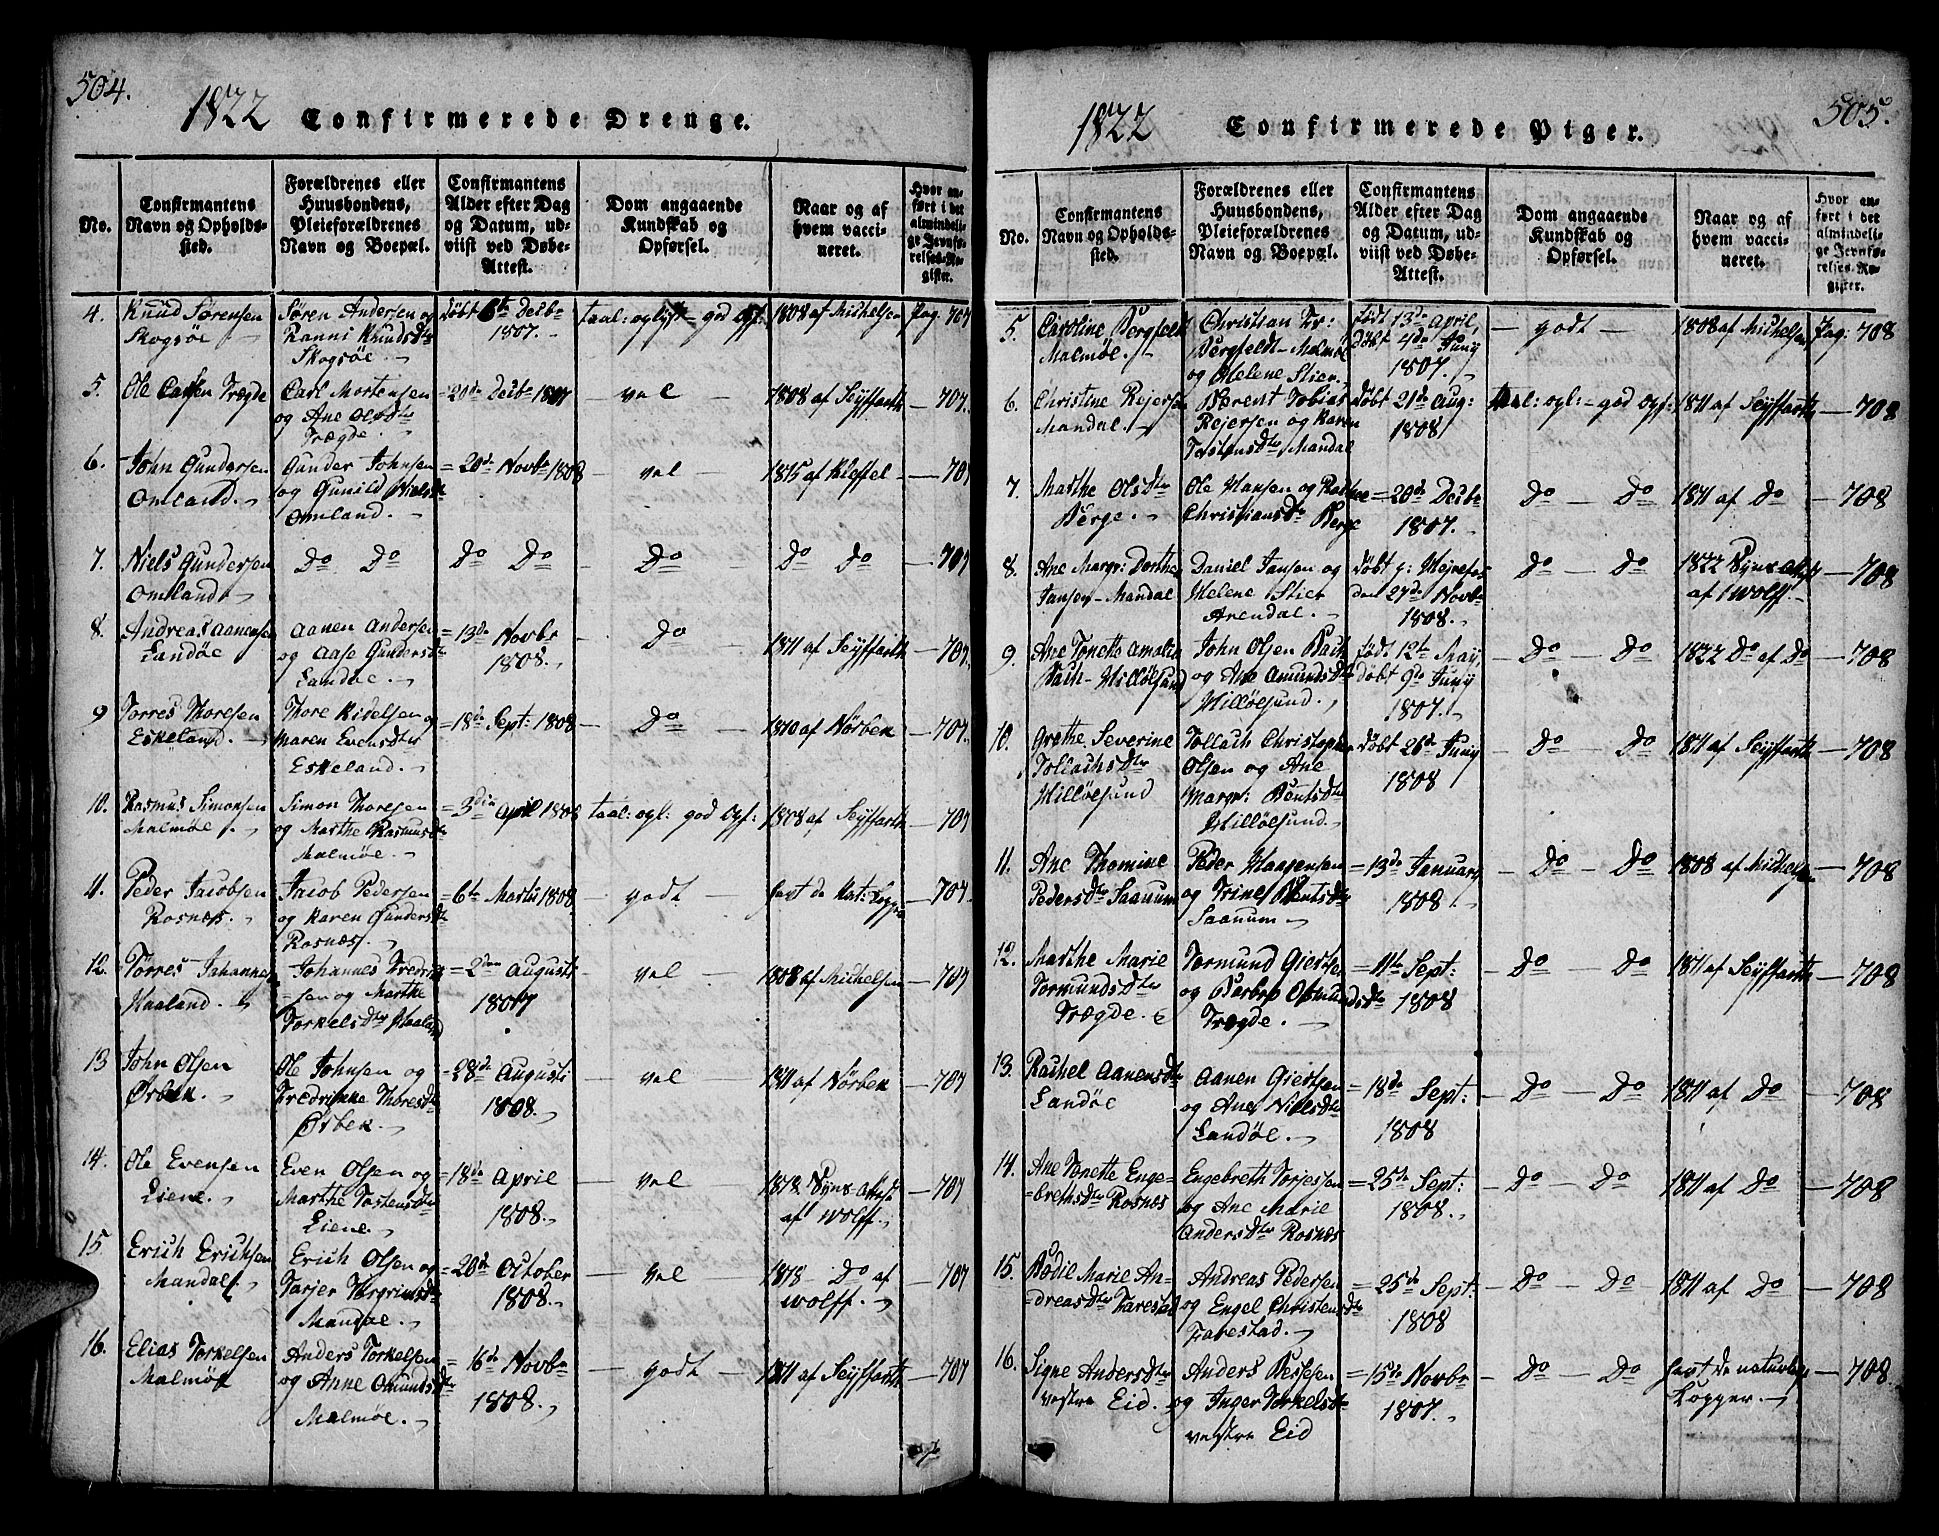 504.
1822 Confirmerede Drenge.
No.
Confirmantens
Navn og Opholds-
sted.
Forældrenes eller
Huusbondens,
Pleieforældrenes
Navn og Boepæl.
Confirmantens
Alder efter Dag
og Datum, ud-
viist ved Døbe-
Attest.
Dom angaaende
Kundskab og
Opførsel.
Naar og af
hvem vacci-
neret.
Hvor an-
ført i det
almindeli-
ge Jevnfø-
relses-Re-
gister.
4. Knud Sørensen
Skogsøe
Søren Andersen og
Ranni Knudsdtr
Skogsøe
døbt 6te Decbr
1807.
taal: oplyst - god Opf:
1808 af Michelsen
Pag. 707
5. Ole Carlsen Trægde
Carl Mortensen
og Ane Olsdtr
Trægde
= 20de Decbr 1807
— vel —
1808 af Seyffarth
— 707.
6. John Gundersen
Omland.
Gunder Johnsen
og Gunild Nielsd
Omland.
= 20de Novbr 1808
— vel —
1815 af Kieffel
— 707
7. Niels Gundersen
Omland
Do Do
Do Do
Do
Do Do
— 707
8. Andreas Aanensen
Landøe
Aanen Andersen
og Aase Gundersdtr
Landøe.
= 13de Novbr
1808.
— Do
1811 af Seyffarth
— 707.
9 Torres Thoresen
Eskeland.
Thore Kidelsen og
Maren Evensdtr
Eskeland.
= 18de Sept: 1808
— Do —
1810 af Nørbek
— 707.
10. Rasmus Simonsen
Malmøe
Simon Thoresen
og Marthe Rasmusdtr
Malmøe.
= 3die April 1808
taal: opl: god Opf:
1808 af Seyffarth
— 707
11. Peder Jacobsen
Rosnæs.
Jacob Pedersen
og Karen Gundersdtr
Rosnæs.
= 6te Martii 1808
— godt —
havt de nat: Kopp
— 707.
12. Torres Johannes
Haaland.
Johannes Fredrik
=sen og Marthe
Torkelsdtr Haaland
= 2den Augusti
1807
— vel —
1808 af Michelsen
— 707
13 John Olsen
Ørbek.
Ole Johnsen og
Fredrikke Thoresdtr
Ørbek.
= 28de Augusti
1808.
— vel —
1811 af Nørbek
— 707
14. Ole Evensen
Liene.
Even Olsen og
Marthe Tostensdtr
Liene.
= 18de April
1808.
— vel
1818 Syns Attest
af Wolff.
— 707
15 Erich Erichsen
Mandal.
Erich Olsen og
Tarjer Torgrimsdtr
Mandal.
= 20de October
1808.
— vel
1818 Do af
Wolff.
707
16. Elias Torkelsen
Malmøe
Anders Torkelsen
og Anne Omundsdtr
Malmøe.
= 16de Novbr
1808.
— godt —
1811 af Seyffarth
— 707
505.
1822 Confirmerede Piger.
No.
Confirmantens
Navn og Opholds-
sted.
Forældrenes eller
Huusbondens,
Pleieforældrenes
Navn og Boepæl.
Confirmantens
Alder efter Dag
og Datum, ud-
viist ved Døbe-
Attest.
Dom angaaende
Kundskab og
Opførsel.
Naar og af
hvem vacci-
neret.
Hvor an-
ført i det
almindeli-
ge Jevnfø-
relses-Re-
gister.
5. Caroline Bergfeldt
Malmøe.
Christian Fr:
Bergfeldt - Malmøe
og Helene Stier.
født 13de April,
døbt 4de Juny
1807.
— godt —
1808 af Michelsen
Pag. 708
6. Christine Reiersen
Mandal.
Berent Tobias
Reiersen og Karen
Tostensdtr Mandal
døbt 21de Aug:
1808
taal: opl: - god Opf:
1811 af Seyffarth
— 708
7. Marthe Olsdtr
Berge.
Ole Hansen og
Christiansdtr Berge
= 20de Decbr
1807.
Do — Do
1811 af Do
— 708
8. Ane Margr: Dorthea
Jansen - Mandal
Daniel Jansen og
Helene Stier
Arendal.
døbt
den 27de Novbr
1808.
Do — Do
1822 Syns Attest
af Wolff.
— 708
9. Ane Tonette Amalia
Bach - Hilløesund
John Olsen Bach
og Ane Amundsdtr
Hilløesund.
født 12te May,
døbt 9de Juny
1807.
— Do — Do
1822 Do af Do
— 708
10. Grethe Severine
Tollachsdtr
Hilløesund
Tollach Christopher
Olsen og Ane
Margr: Berntsdtr
Hilløesund.
døbt 26de Juny
1808
Do — Do
1811 af Seyffarth
— 708
11. Ane Thomine
Pedersdtr Saanum
Peder Haagensen
og Trine Berntsdtr
Saanum
= 13de January
1808.
— Do — Do
1808 af Michelsen
— 708
12. Marthe Marie
Tormundsdtr
Trægde.
Tormund Giertsen
og Barbro Osmundsdtr
Trægde.
= 11te Sept:
1808
Do — Do
1811 af Seyffarth
— 708
13. Rachel Aanensdtr
Landøe
Aanen Giertsen
og Ane Nielsdtr
Landøe.
= 18de Sept:
1808
— Do — Do
1811 af Do
— 708
14. Ane Tonette Enge-
=brethsdtr Rosnæs
Engebreth Torjessen
og Ane Marie
Andersdtr Rosnæs
= 25de Sept:
1808.
Do — Do
1811 af Do
— 708
15. Bodil Marie An-
=dreasdtr Farestad
Andreas Pedersen
og Engel Christensdtr
Farestad.
= 25de Sept:
1808
Do — Do
1811 af Do
— 708
16. Signe Andersdtr
vestre Eid.
Anders Bessesen
og Inger Torkelsdtr
vestre Eid
= 15de Novbr
1807.
— Do — Do
havt de naturlige
Kopper.
— 708.